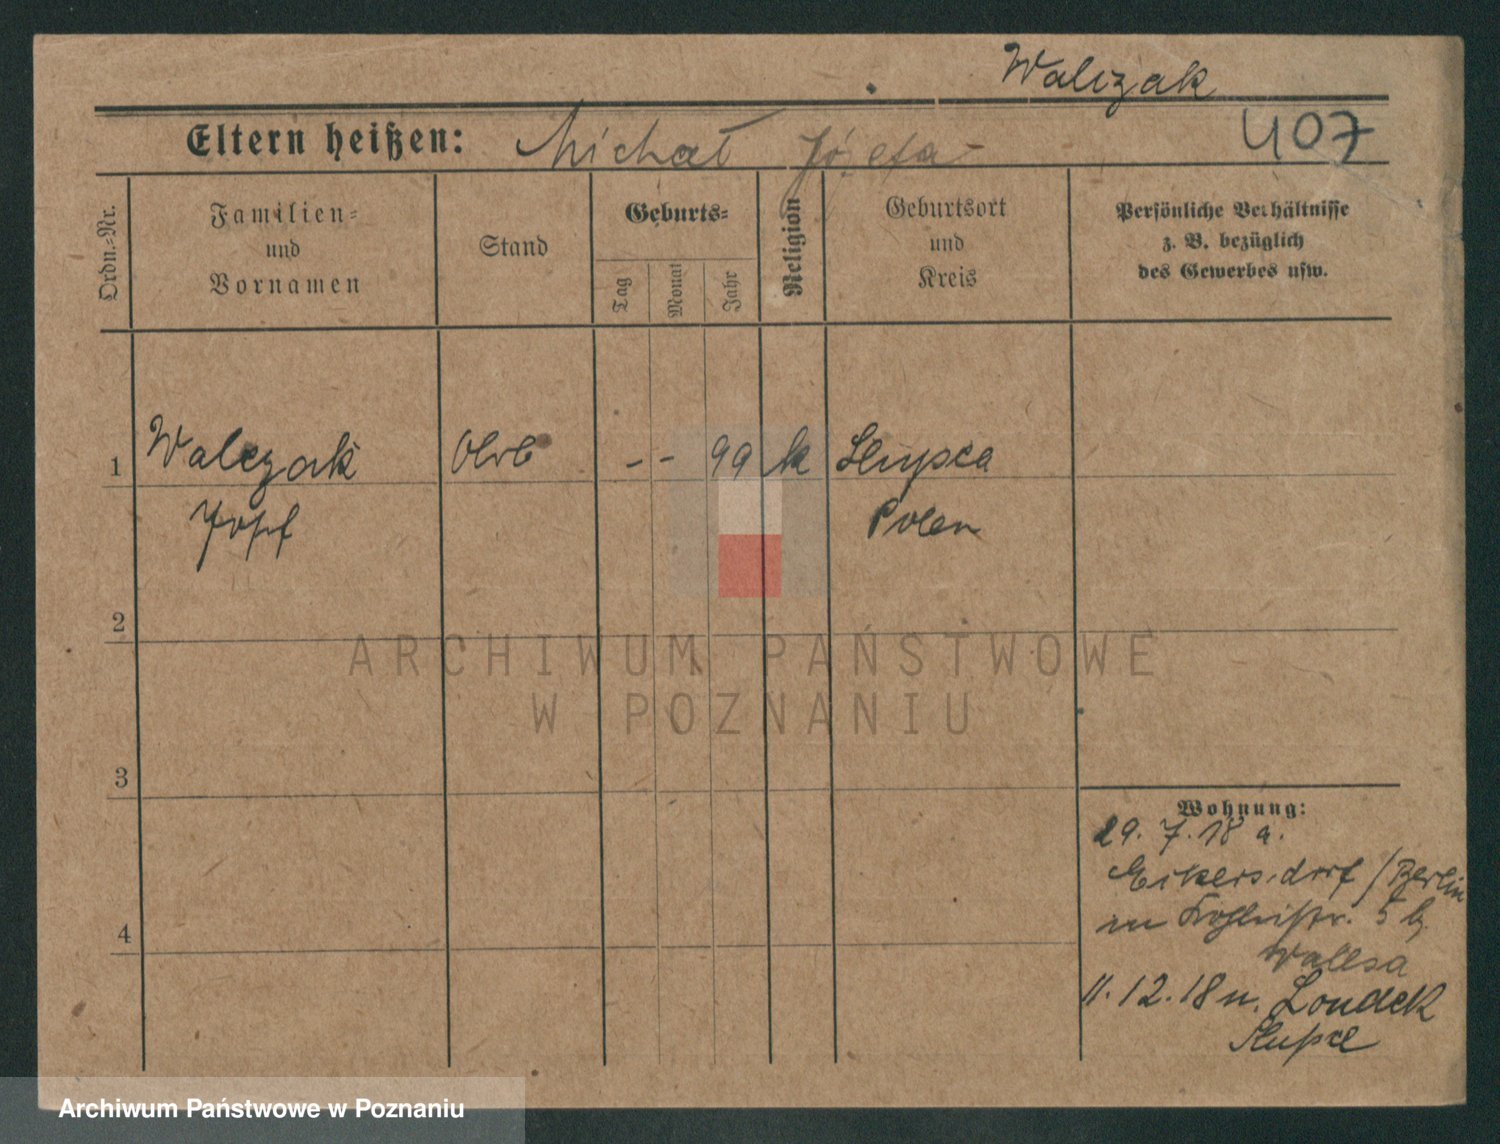 Walczak
Eltern heißen: Michał Józefa
407
Ordn.-Nr.
Familien-
und
Vornamen
Stand
Geburts-
Tag
Monat
Jahr
Religion
Geburtsort
und
Kreis
Persönliche Verhältnisse
z. B. bezüglich
des Gewerbes usw.
1 Walczak - - 99 k Slupca
Polen
2
3
4
Wohnung:
29. 7. 18 a.
/ Berlin
in 5 b.
Wallsa
11. 12. 18 n. Londek
Slupce
ARCHIWUM PAŃSTWOWE
W POZNANIU
Archiwum Państwowe w Poznaniu